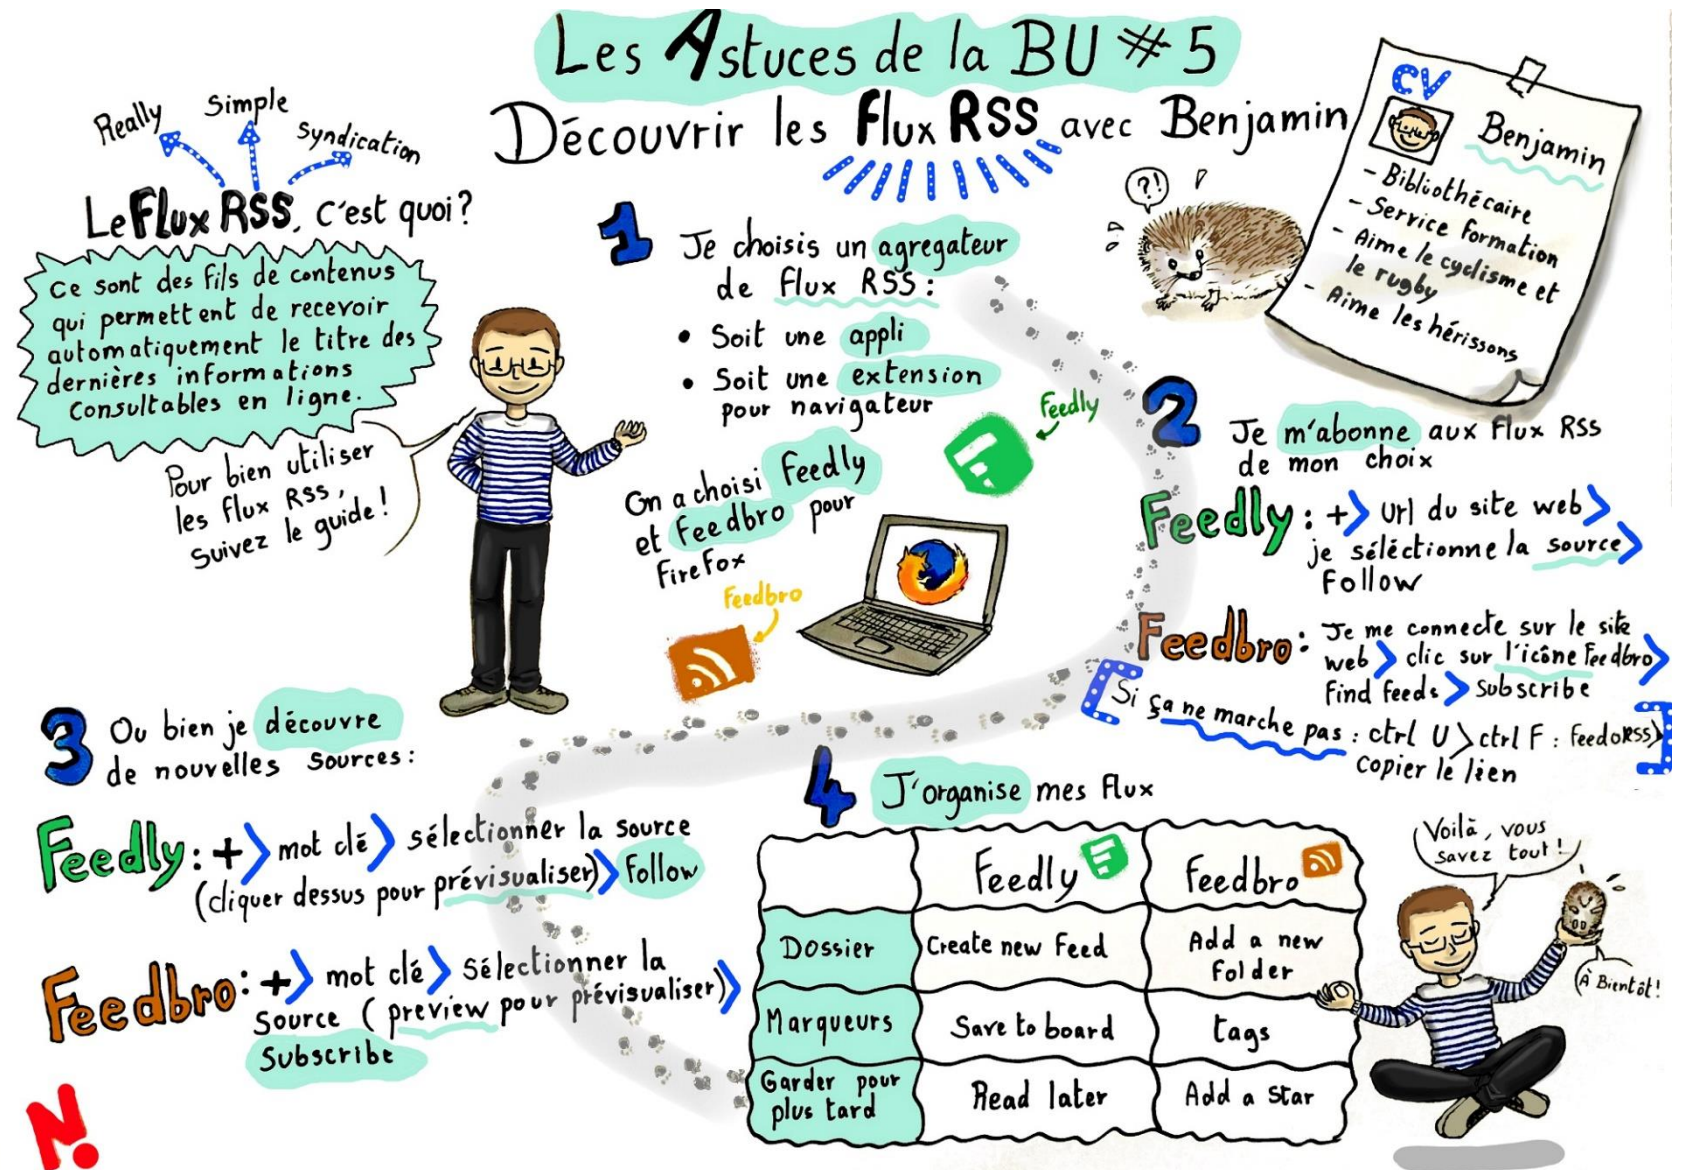 Les Astuces de la BU # 5
Découvrir les Flux RSS avec Benjamin
Really
Simple
Syndication
Le Flux RSS, c'est quoi ?
Ce sont des fils de contenus
qui permettent de recevoir
automatiquement le titre des
dernières informations
consultables en ligne.
Pour bien utiliser
les flux RSS,
suivez le guide !
CV
Benjamin
- Bibliothécaire
- Service Formation
- Aime le cyclisme et
le rugby
- Aime les hérissons
?!
1
Je choisis un agregateur
de flux RSS :
• Soit une appli
• Soit une extension
pour navigateur
Feedly
On a choisi Feedly
et Feedbro pour
FireFox
Feedbro
2
Je m'abonne aux flux RSS
de mon choix
Feedly : + > Url du site web >
je séléctionne la source >
Follow
Feedbro : Je me connecte sur le site
web > clic sur l'icône Feedbro >
Find feeds > Subscribe
[Si ça ne marche pas : ctrl U > ctrl F : feedoRSS >
copier le lien]
3
Ou bien je découvre
de nouvelles sources :
Feedly : + > mot clé > sélectionner la source
(cliquer dessus pour prévisualiser) > Follow
Feedbro : + > mot clé > Sélectionner la
source (preview pour prévisualiser) >
Subscribe
4
J'organise mes flux
Feedly
Feedbro
Dossier
Create new Feed
Add a new
Folder
Marqueurs
Save to board
tags
Garder pour
plus tard
Read later
Add a star
Voilà, vous
savez tout !
À Bientôt !
N.